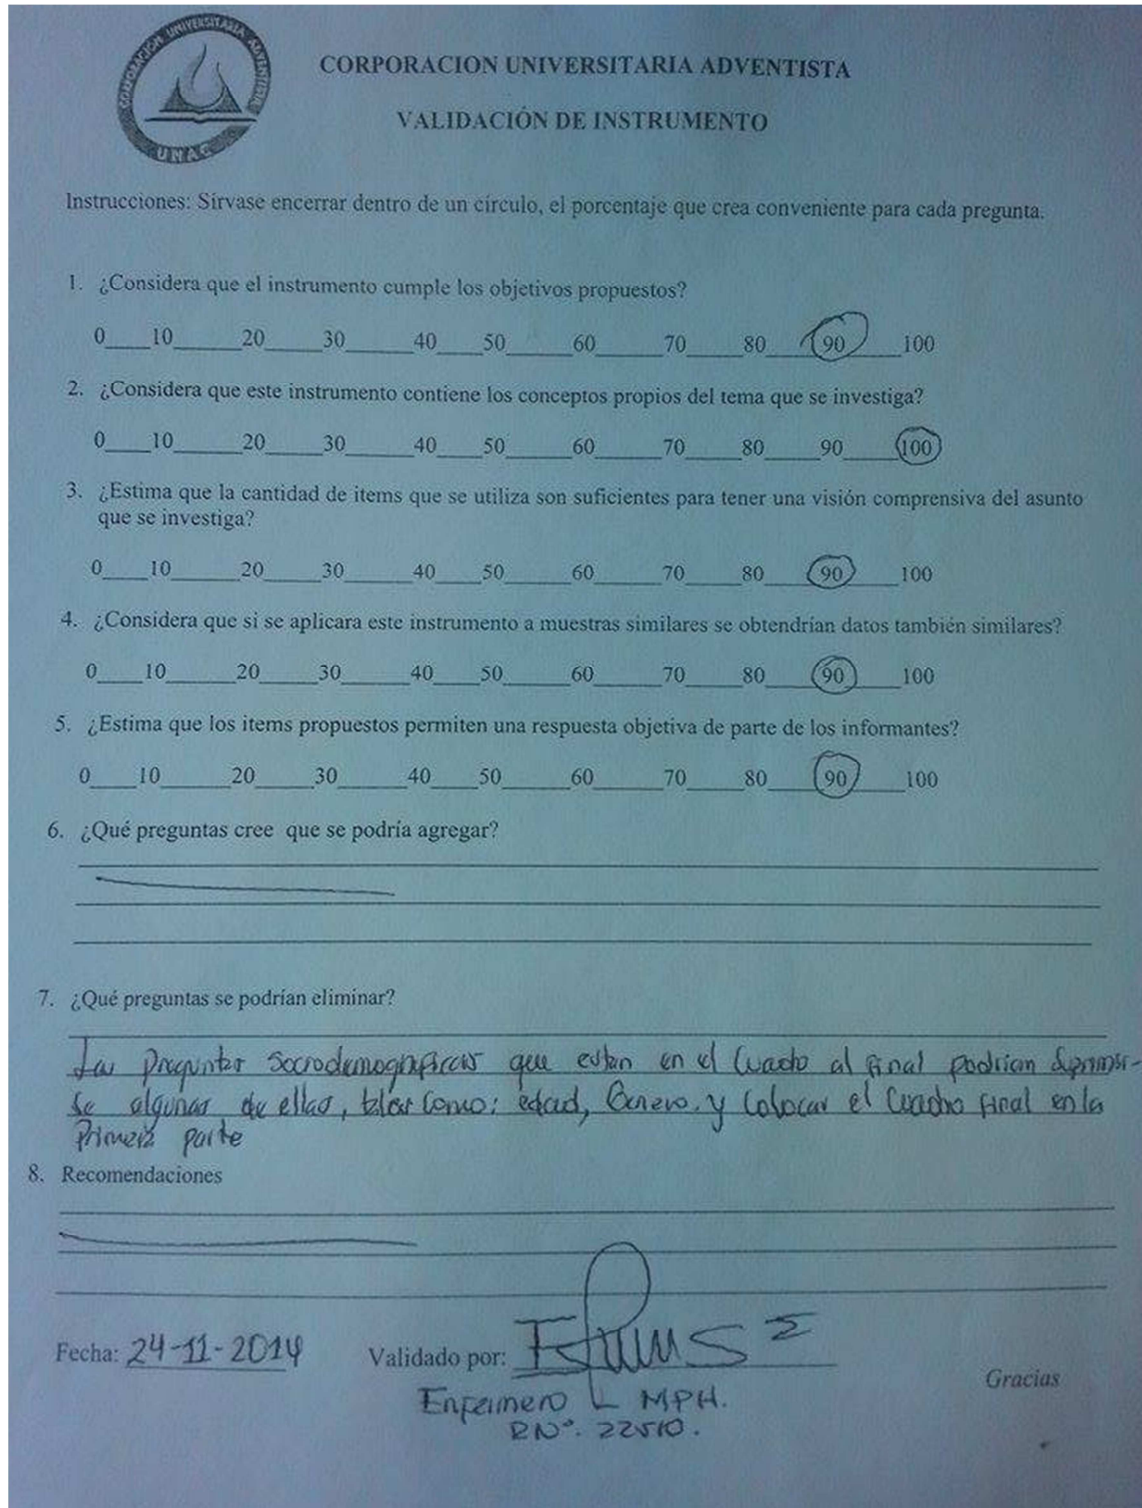 CORPORACIÓN UNIVERSITARIA ADVENTISTA
UNAC
CORPORACION UNIVERSITARIA ADVENTISTA
VALIDACIÓN DE INSTRUMENTO
Instrucciones: Sírvase encerrar dentro de un círculo, el porcentaje que crea conveniente para cada pregunta.
1. ¿Considera que el instrumento cumple los objetivos propuestos?
0____10______20_____30______40____50______60_____70_____80____90____100
2. ¿Considera que este instrumento contiene los conceptos propios del tema que se investiga?
0____10______20_____30______40____50______60______70_____80_____90_____100
3. ¿Estima que la cantidad de items que se utiliza son suficientes para tener una visión comprensiva del asunto
que se investiga?
0____10______20_____30______40____50______60______70_____80____90____100
4. ¿Considera que si se aplicara este instrumento a muestras similares se obtendrían datos también similares?
0____10______20_____30______40____50______60______70_____80____90____100
5. ¿Estima que los items propuestos permiten una respuesta objetiva de parte de los informantes?
0____10______20_____30______40____50______60______70_____80____90____100
6. ¿Qué preguntas cree que se podría agregar?
7. ¿Qué preguntas se podrían eliminar?
Las Preguntas Sociodemograficas que estan en el Cuadro al final podrian Suprimir-
se algunas de ellas, tales como: edad, Genero. y Colocar el Cuadro final en la
Primera parte
8. Recomendaciones
Fecha: 24-11-2014 Validado por:
Gracias
Enfermero MPH.
RNº. 22510.